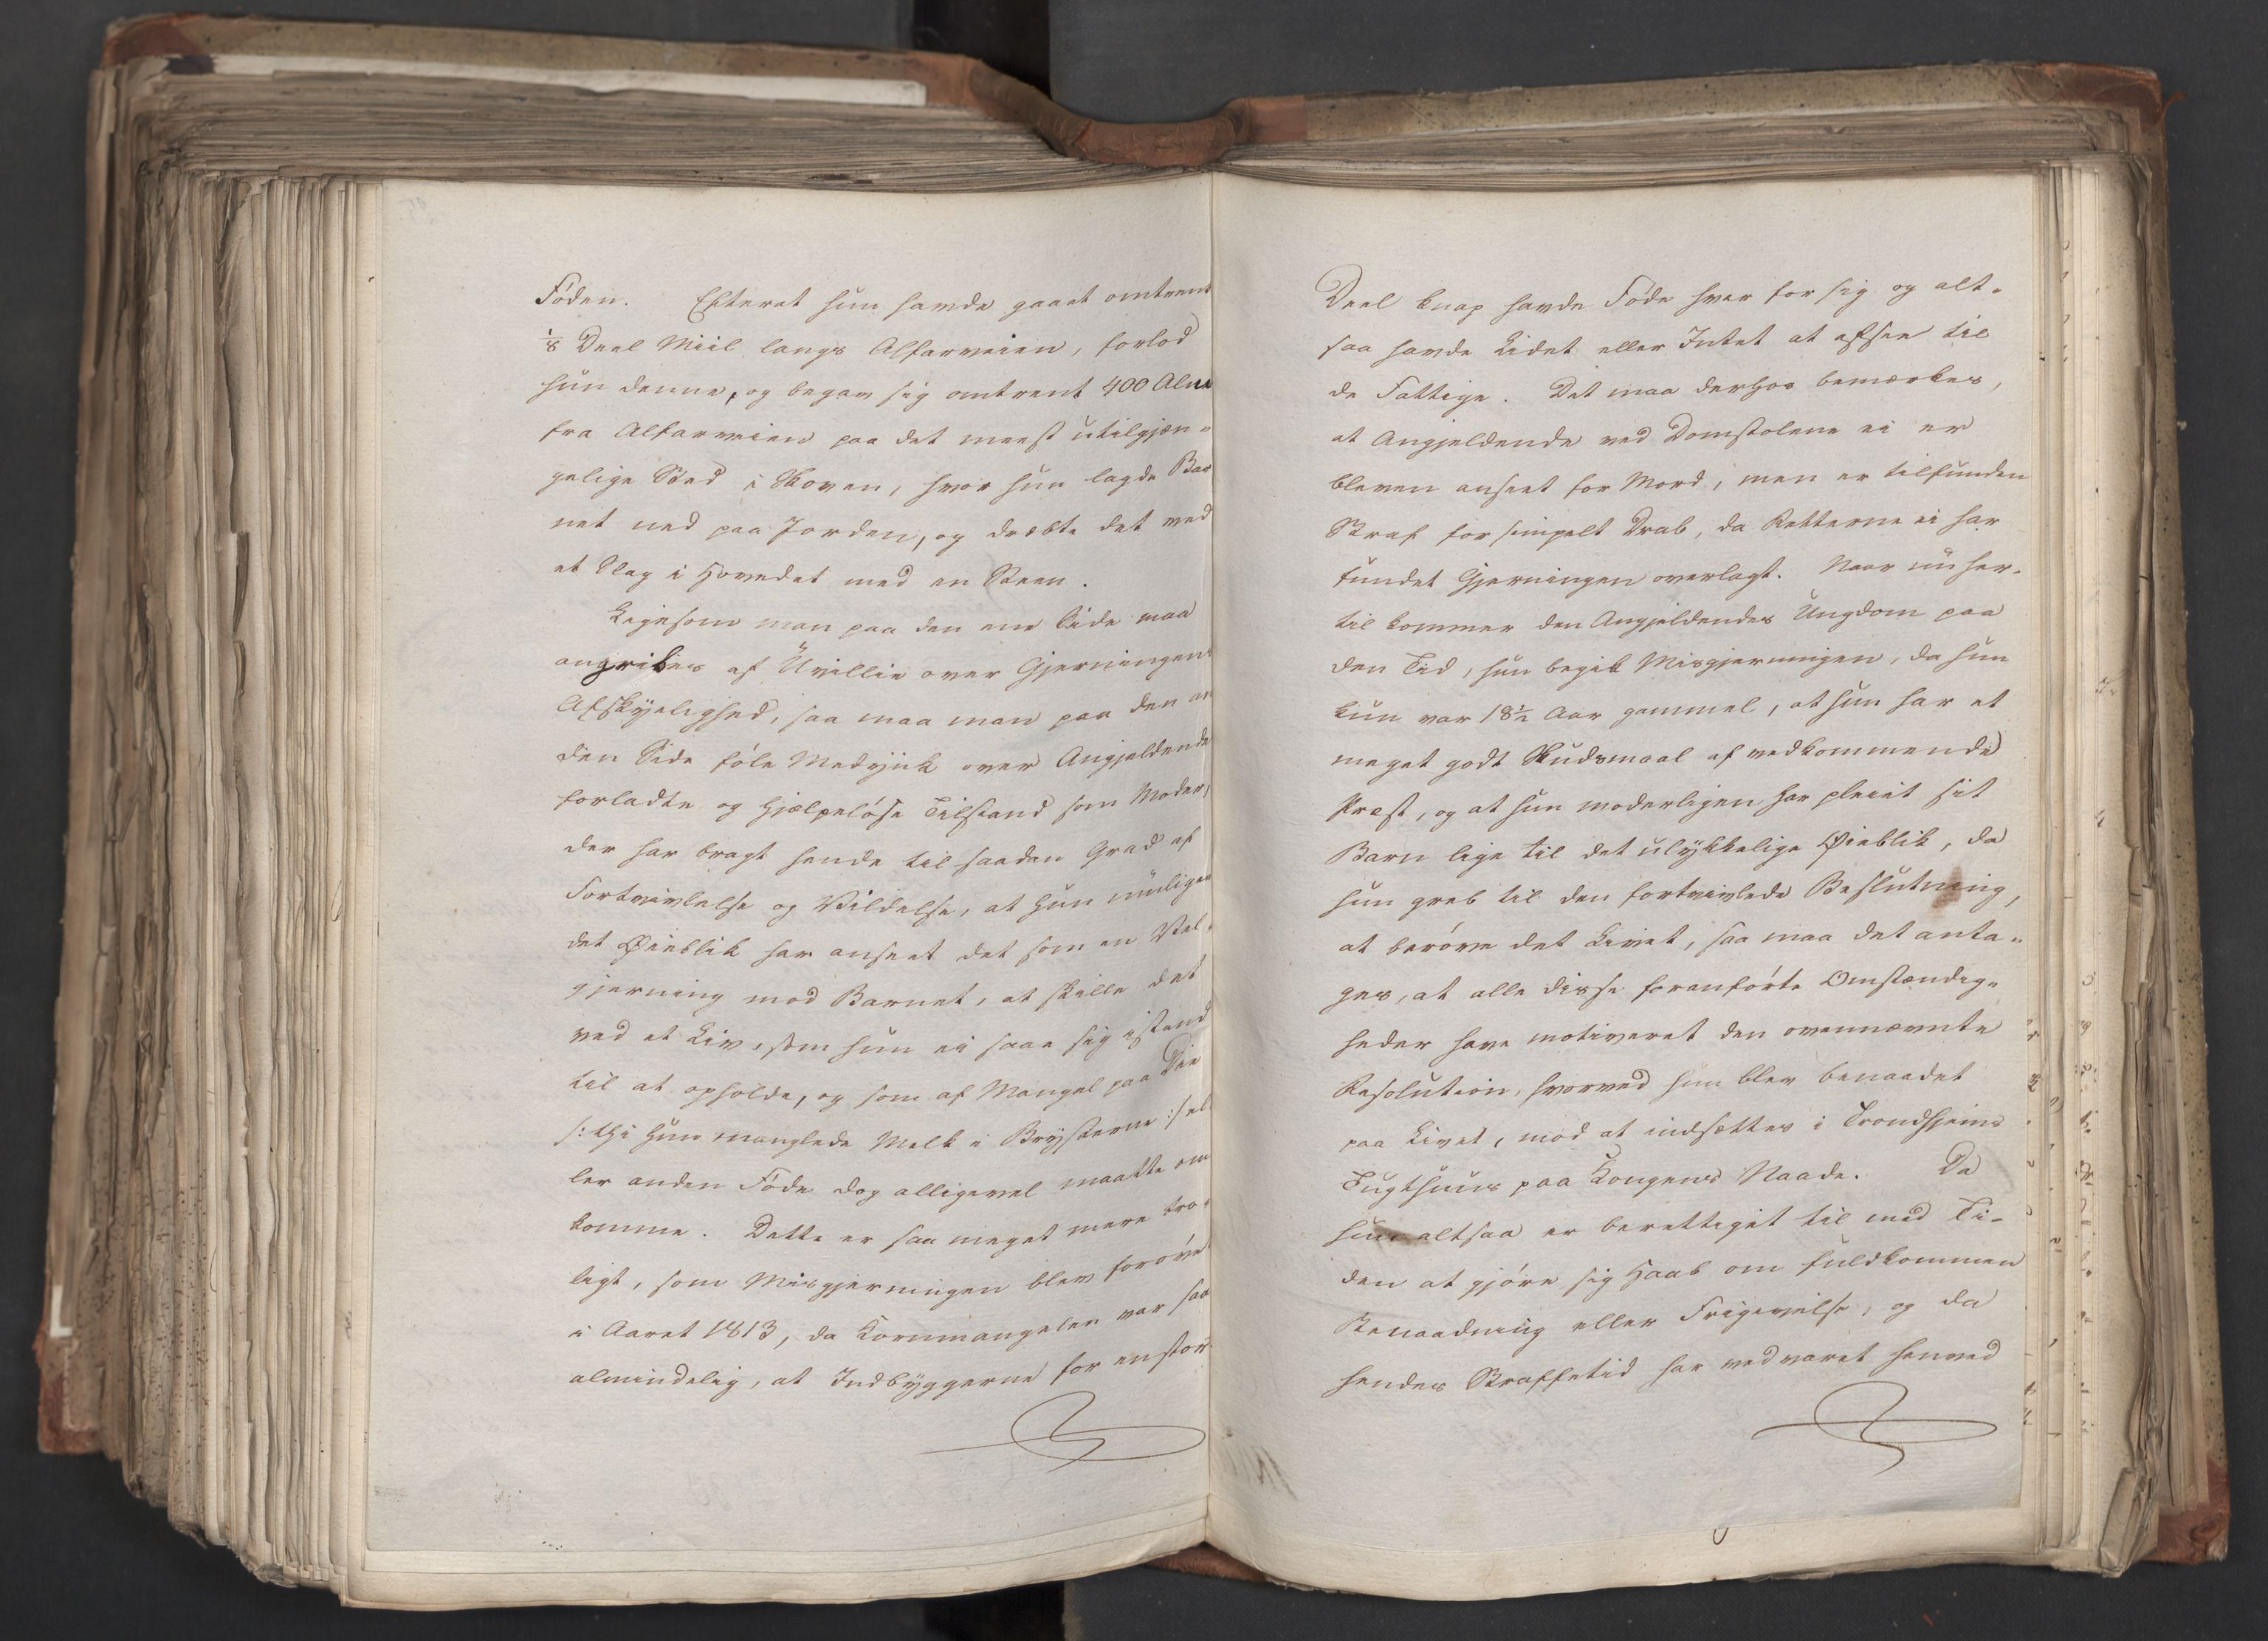 Föden. Efterat hun havde gaaet omtrent
1/8 Deel Miil langs Alfarveien, forlod
hun denne, og begav sig omtrent 400 Alne
fra Alfarveien paa det meest utilgjæn-
gelige Sted i Skoven, hvor hun lagde Bar
net ned paa Jorden, og dræbte det ved
et Slag i Hovedet med en Steen.
Ligesom man paa den ene Side maa
angribes af Uvillie over Gjerningens
Afskyelighed, saa maa man paa den an
den Side föle Medynk over Angjeldende
forladte og hjælpelöse Tilstand som Moder,
der har bragt hende til saadan Grad af
Fortvivlelse og Vildelse, at hun muligen
det Øieblik har anseet det som en Vel-
gjerning mod Barnet, at skille det
ved et Liv, som hun ei saae sig istand
til at opholde, og som af Mangel paa Die
/: thi hun manglede Melk i Brysterne :/ el
ler anden Föde dog alligevel maatte om
komme. Dette er saa meget mere tro-
ligt, som Misgjerningen blev foröve
i Aaret 1813, da Kornmangelen var saa
almindelig, at Indbyggerne for en stor
Deel knap havde Föde hver for sig og alt-
saa havde Lidet eller Intet at afsee til
de Fattige. Det maa derhos bemærkes,
at Angjeldende ved Domstolene ei er
bleven anseet for Mord, men er tilfunden
Straf for simpelt Drab, da Retterne ei har
fundet Gjerningen overlagt. Naar nu her-
til kommer den Angjeldendes Ungdom paa
den Tid, hun begik Misgjerningen, da hun
kun var 18½ Aar gammel, at hun har et
meget godt Skudsmaal af vedkommende
Præst, og at hun moderligen har pleiet sit
Barn lige til det ulykkelige Øieblik, da
hun greb til den fortvivlede Beslutning,
at beröve det Livet, saa maa det anta-
ges, at alle disse foranförte Omstændig-
heder have motiveret den ovennævnte
Resolution, hvorved hun blev benaadet
paa Livet, mod at indsættes i Trondhjems
Tugthuus paa Kongens Naade. Da
hun altsaa er berettiget til med Ti-
den at gjöre sig Haab om fuldkommen
Benaadning eller Frigivelse, og da
hendes Straffetid har vedvaret henved